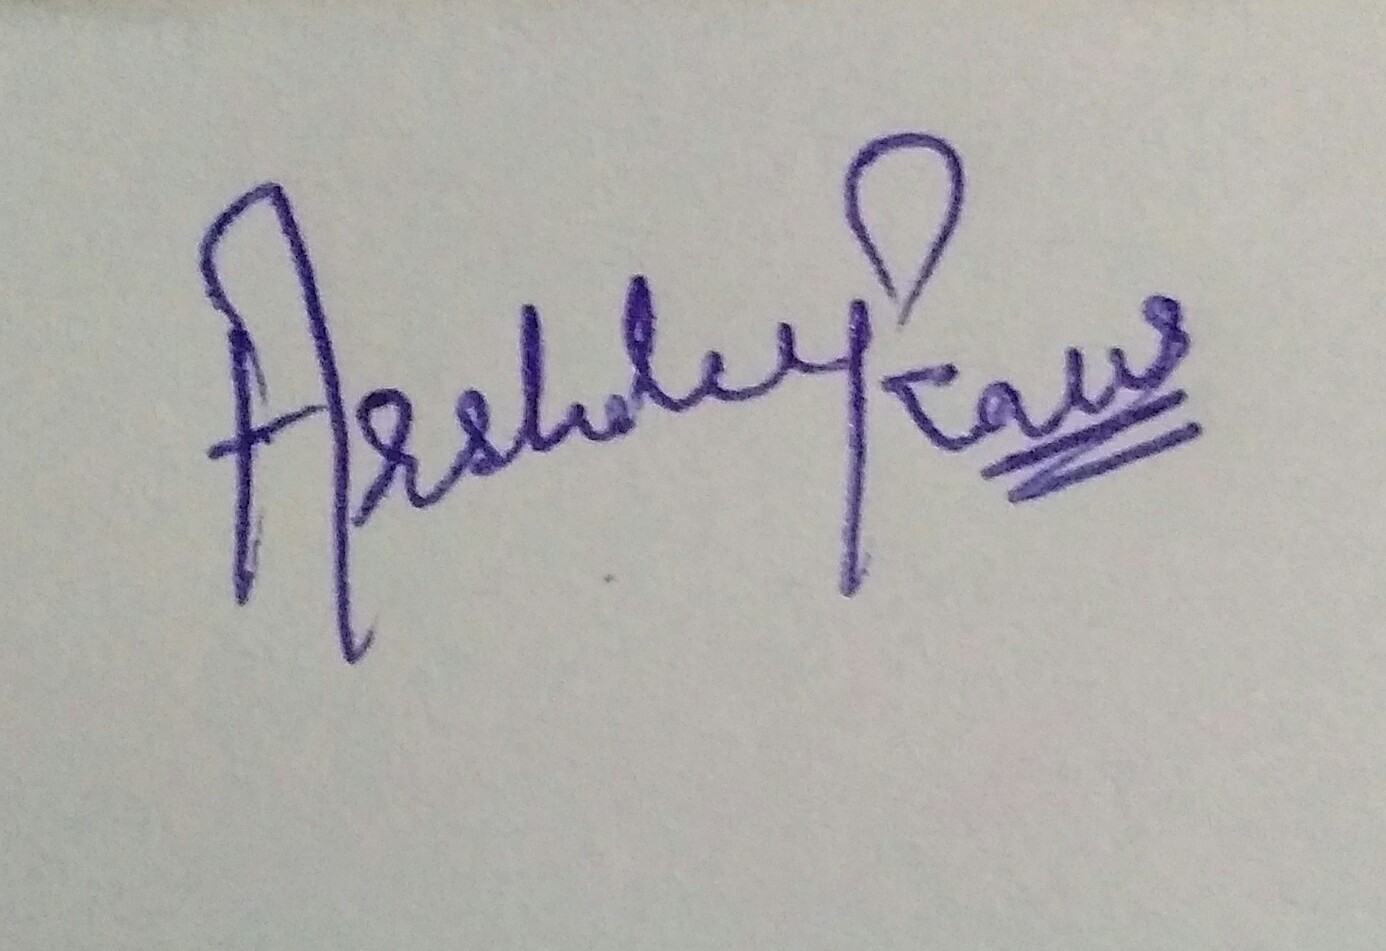 Arshdeep Kaur